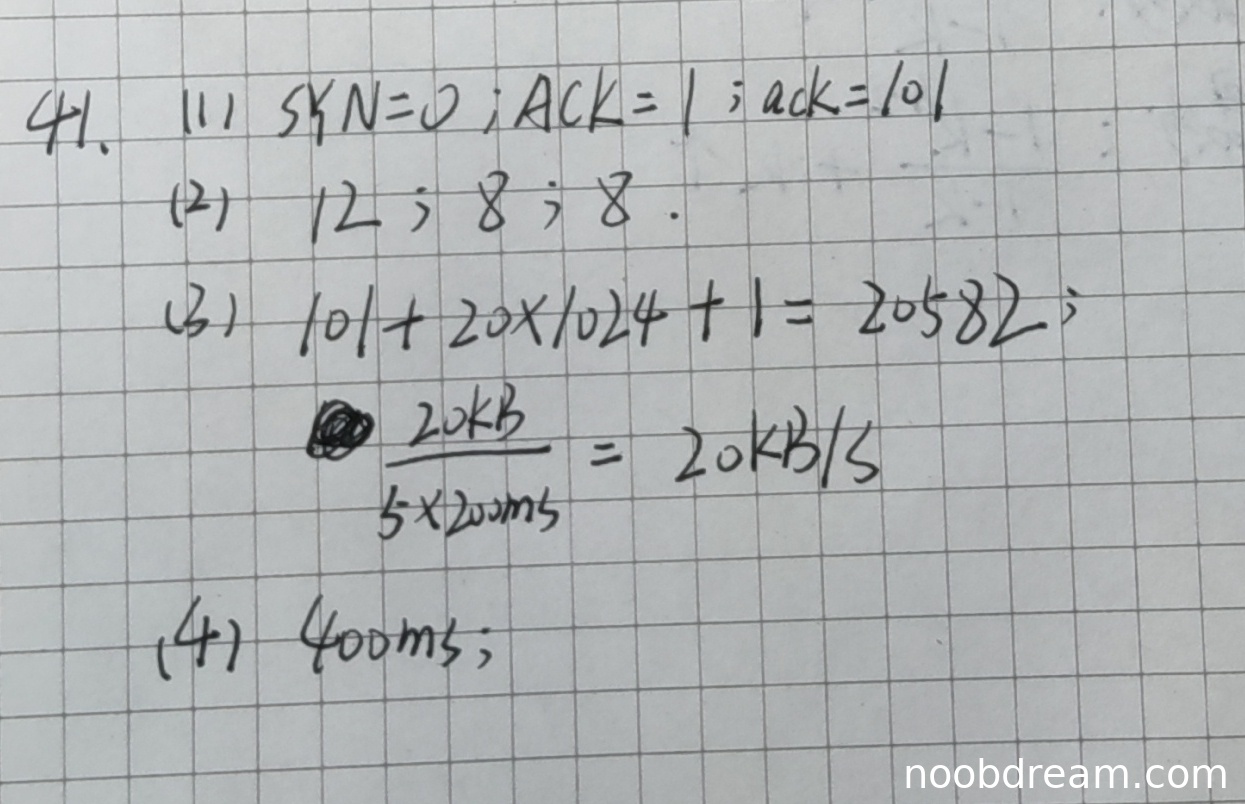 41. (1) SYN=0;ACK=1;ack=101
(2) 12;8;8.
(3) 101+20×1024+1=20582;
20KB
5×200ms
=20KB/S
(4) 400ms;
noobdream.com